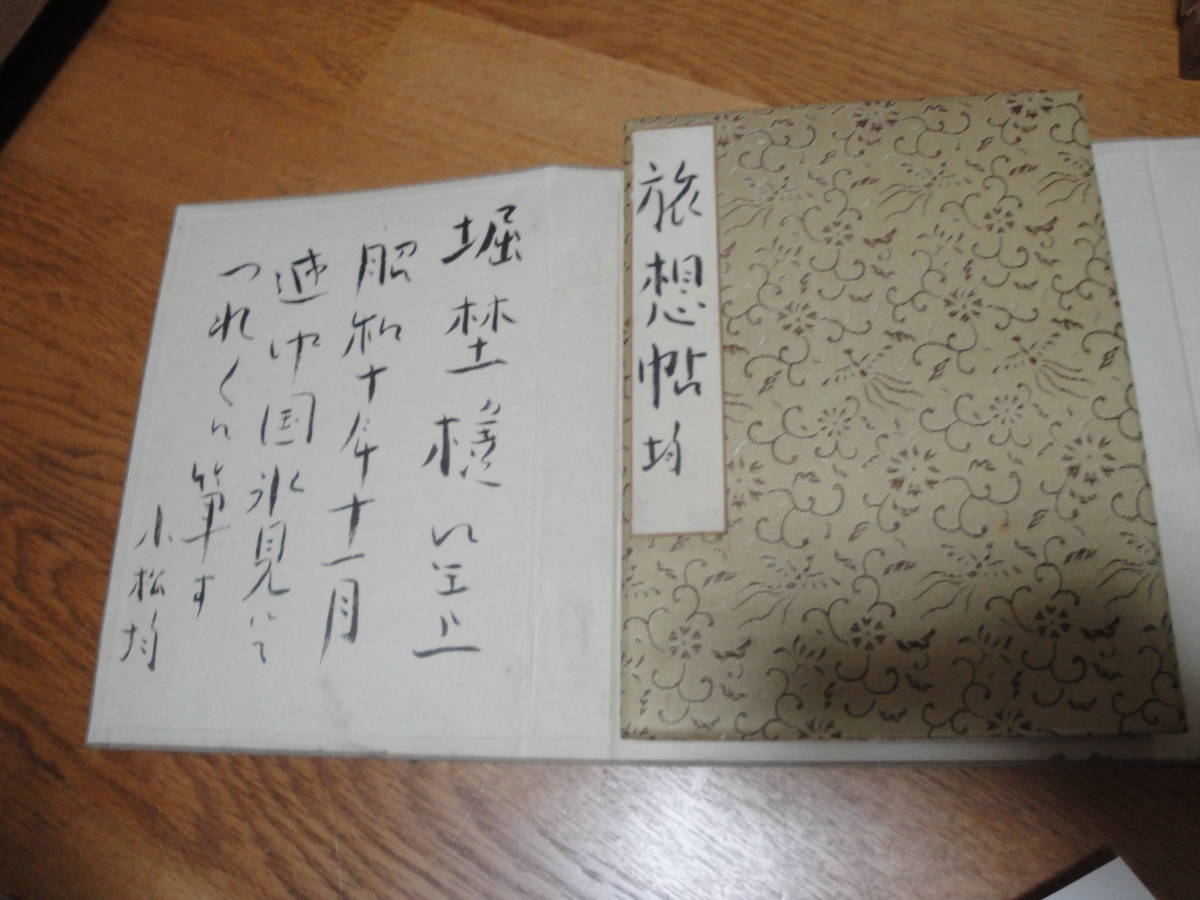 旅想帖 均
堀埜様に呈上
昭和十年十一月
越中国氷見にて
つれ〱に筆す
小松均